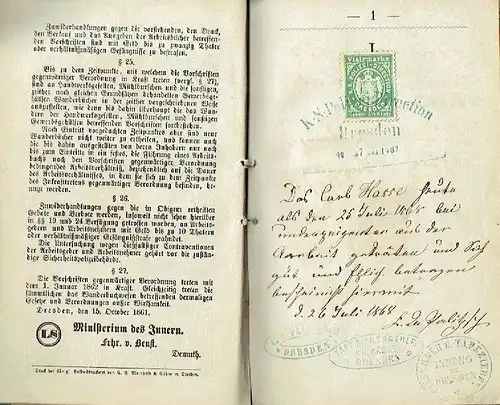 Zuwiderhandlungen gegen die vorstehenden, den Druck,
den Verkauf und das Ausgeben der Arbeitsbücher betreffen-
den Vorschriften sind mit Geld bis zu zwanzig Thaler
oder verhältnißmäßigem Gefängnisse zu bestrafen.
§ 25.
Bis zu dem Zeitpunkte, mit welchem die Vorschriften
gegenwärtiger Verordnung in Kraft treten (vergl. § 27),
sind an Handwerksgesellen, Mühlburschen und die sonstigen,
zeither nach gleichen Grundsätzen behandelten Gewerbsge-
hülfen Wanderbücher in der zeither vorgeschriebenen Weise
auszustellen, wie denn bis dahin überhaupt die das Wan-
dern der Handwerksgesellen, Mühlburschen und sonstigen
Gewerbsgehülfen betreffenden Vorschriften fortbestehen.
Nach Eintritt vorgedachten Zeitpunktes aber sind neue
Wanderbücher nicht weiter zu ertheilen, und können auch
die bis dahin ausgestellten von deren Inhabern nur noch
bis zum Eintritte in ein festes, die Führung eines Arbeits-
buchs nach den Vorschriften gegenwärtiger Verordnung
bedingendes Arbeitsverhältniß, beziehentlich auf die Dauer
des Arbeitsverhältnisses, in dem sie sich zu dem Zeitpunkte
des Inkrafttretens gegenwärtiger Verordnung befinden, be-
nutzt werden.
§ 26.
Zuwiderhandlungen gegen die in Obigem ertheilten
Gebote und Verbote werden, insoweit nicht schon hierüber
in §§ 19 und 24 Verfügung getroffen worden, an Arbeitge-
bern und Arbeitnehmern mit Geld bis zu 5 Thaler
oder verhältnißmäßiger Gefängnißstrafe geahndet.
Die Untersuchung wegen dießfallsiger Contraventionen
der Arbeitgeber und Arbeitnehmer gehört vor die zustän-
dige Sicherheitspolizeibehörde.
§ 27.
Die Vorschriften gegenwärtiger Verordnung treten mit
dem 1. Januar 1862 in Kraft. Gleichzeitig treten die
sämmtlichen das Wanderbuchwesen betreffenden dermaligen
Gesetze und Verordnungen außer Wirksamkeit.
Dresden, den 15. October 1861.
LS
Ministerium des Innern.
Frhr. v. Beust.
Demuth.
Druck der Königl. Hofbuchdruckerei von C. C. Meinhold & Söhne in Dresden.
— 1 —
I.
Visirmarke
Dresden
Das Carl Hasse heute
als den 25 Juli 1868 bei
aus der
Arbeit getreten und sich
gut und betragen
bescheinigt hiermit
d. 26 Juli 1868
DRESDEN
DRESDEN
INNUNG
ZU
DRESDEN